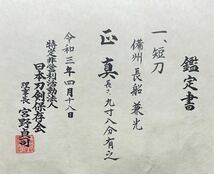 鑑定書
一、短刀
備州長船兼光
正真 長さ 九寸八分有之
令和三年四月十八日
特定非営利活動法人
日本刀剣保存会
理事長 宮野貞司